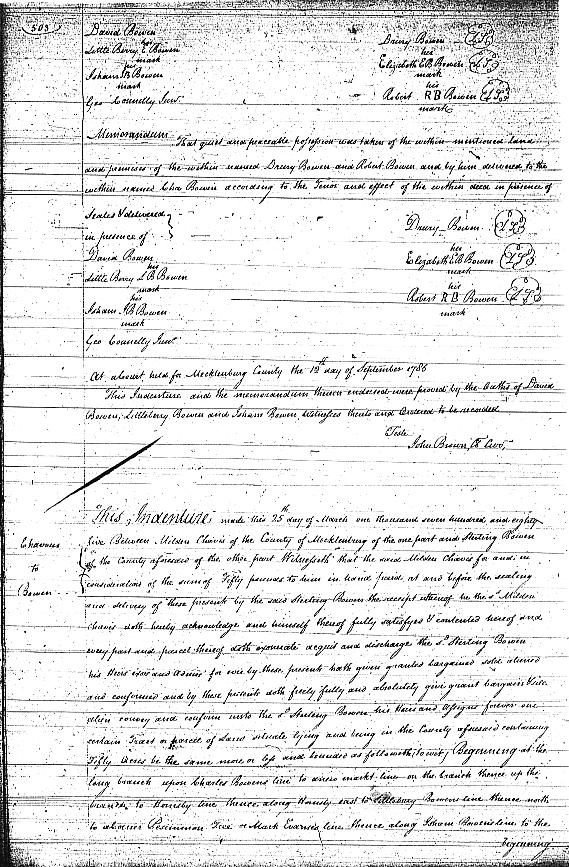 503
David Bowen
Little Berry his E Bowen
mark
his
Isham B Bowen
mark
Geo Connelly Junr
Drury Bowen LS
his
Elizabeth EB Bowen LS
mark
his
Robert RB Bowen LS
mark
Memorandum That quiet and peaceable possession was taken of the within mentioned Land
and premises of the within named Drury Bowen and Robert Bowen and by him delivered to the
within named Cha Bowen according to the Tenor and effect of the within deed in presence of
Seales & delivered
in presence of
David Bowen
his
Little Berry LB Bowen
mark
his
Isham B Bowen
mark
Geo Connelly Junr
Drury Bowen LS
his
Elizabeth EB Bowen LS
mark
his
Robert RB Bowen LS
mark
At a Court held for Mecklenburg County the 12th day of September 1786
This Indenture and the memorandum thereon endorsed were proved by the Oaths of David
Bowen, Littleberry Bowen and Isham Bowen, Witnesses thereto and Ordered to be recorded
Teste
John Brown,
Chavous
to
Bowen
This Indenture made this 25th day of March one thousand seven hundred and eighty
five Between Milden Chavis of the County of Mecklenburg of the one part and Sterling Bowen
of the County aforesaid of the other part Witnesseth that the said Milden Chavis for and in
consideration of the sum of Fifty pounds to him in hand paid, at and before the sealing
and delivery of these presents by the said Sterling Bowen the receipt whereof he the sd Milden
Chavis doth hereby acknowledge and himself thereof fully satisfyed & contented hereof and
every part and parcel thereof doth exonerate acquit and discharge the sd Sterling Bowen
his Heirs Exors and Admrs for ever by these presents hath given granted bargained sold aliened
and confirmed and by these presents doth freely fully and absolutely give grant bargain & sell
alien convey and confirm unto the sd Sterling Bowen his Heirs and Assigns forever one
certain Tract or parcel of Land situate lying and being in the County aforesaid containing
Fifty Acres be the same more or less and bounded as followeth, to wit, Beginning at the
long branch upon Charles Bowens line to a line on the branch thence up the
branch to Hornsby line thence along Hornsby east to Littlebury Bowens line thence north
to a Persimmon Tree on Mark Evans's line thence along Isham Bowens line to the
beginning